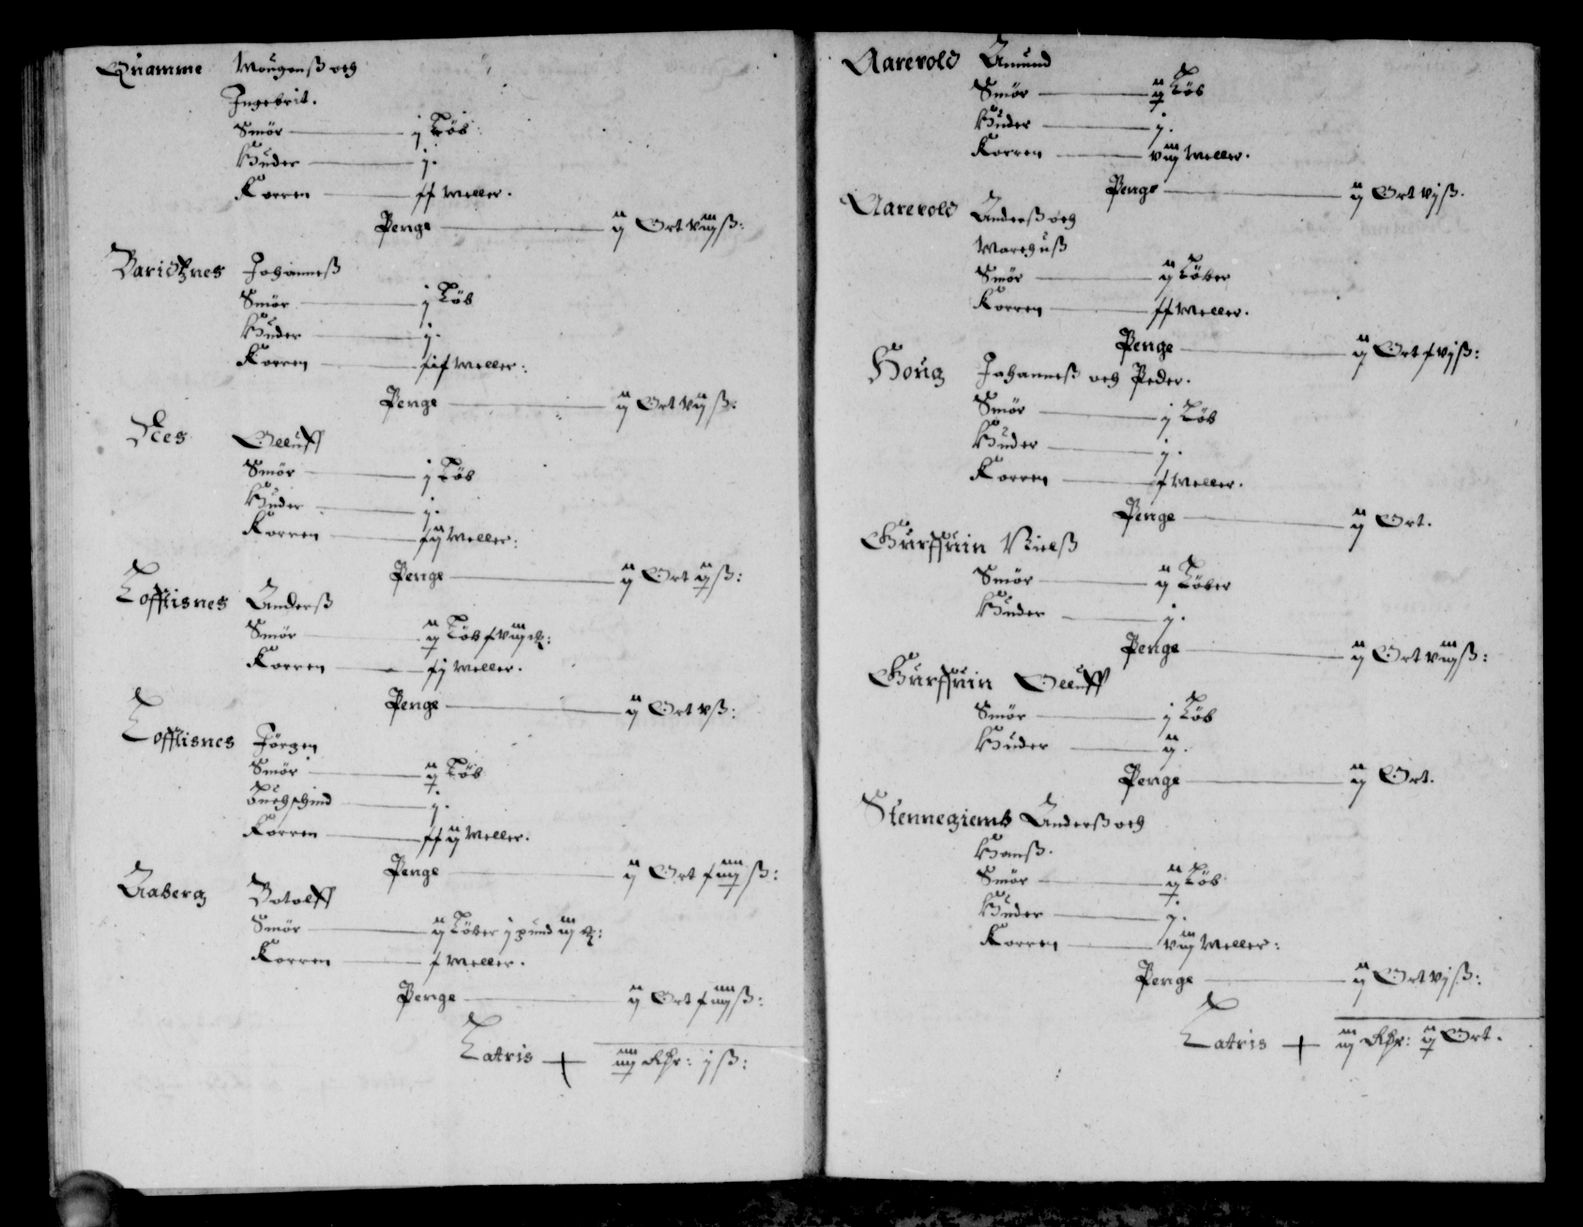 Quamme Mougenß och
Ingebrit.
Smör j Löb
Huder j.
Korren xx Meller.
Penge ij Ort viijß:
Barichnes Johanneß
Smör j Löb
Huder j.
Korren xix Meller:
Penge ij Ort vijß.
Nes Oeluff
Smör j Löb
Huder j.
Korren xij Meller:
Penge ij Ort ijß:
Lofftisnes Anderß
Smör ij Löb
Korren xj Meller.
Penge ij Ort vß:
Lofftisnes Jörgen
Smör ij Löb
Buchschind j.
Korren xxij Meller.
Penge ij Ort xiiijß:
Aaberg Botolff
Smör ij Löber j pund iij
Korren x Meller.
Penge ij Ort xiiijß:
Latris + iiij Rdr: jß:
Aarevold Amund
Smör ij Löb
Huder j.
Korren viij Meller.
Penge ij Ort vjß.
Aarevold Anderß och
Marchuß
Smör ij Löber
Korren xx Meller.
Penge ij Ort xvjß:
Houg Johanneß och Peder.
Smör j Löb
Huder j.
Korren x Meller.
Penge ij Ort.
Gurffuin Nielß
Smör ij Löber
Huder j.
Penge ij Ort viijß:
Gurffuin Oeluff
Smör j Löb
Huder ij.
Penge ij Ort.
Stennegiemb Anderß och
Hanß.
Smör ij Löb
Huder j.
Korren viij Meller:
Penge ij Ort vjß:
Latris + iij Rdr: ij Ort.